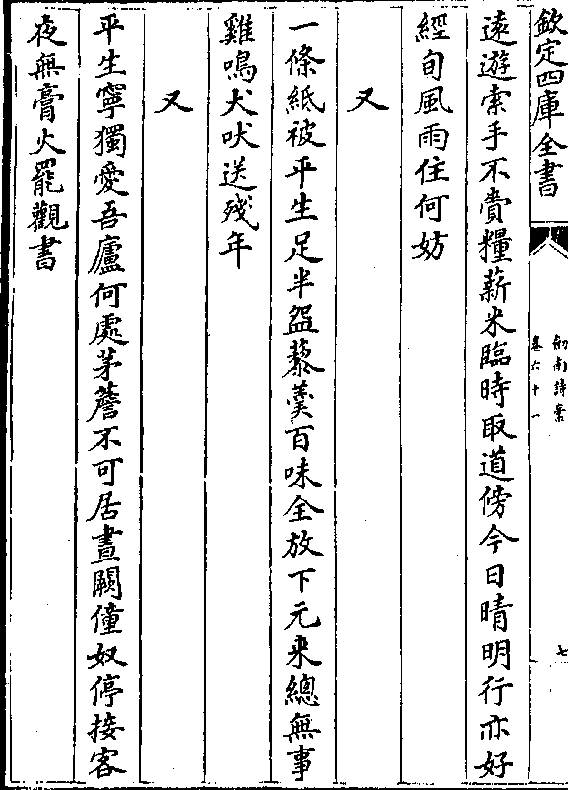 欽定四庫全書
劒南詩藁
卷六十一
七
遠遊索手不賫糧薪米臨時取道傍今日晴明行亦好
經旬風雨住何妨
又
一條紙被平生足半盌藜羮百味全放下元来總無事
雞鳴犬吠送殘年
又
平生寧獨愛吾廬何處茅簷不可居晝闕僮奴停接客
夜無膏火罷觀書